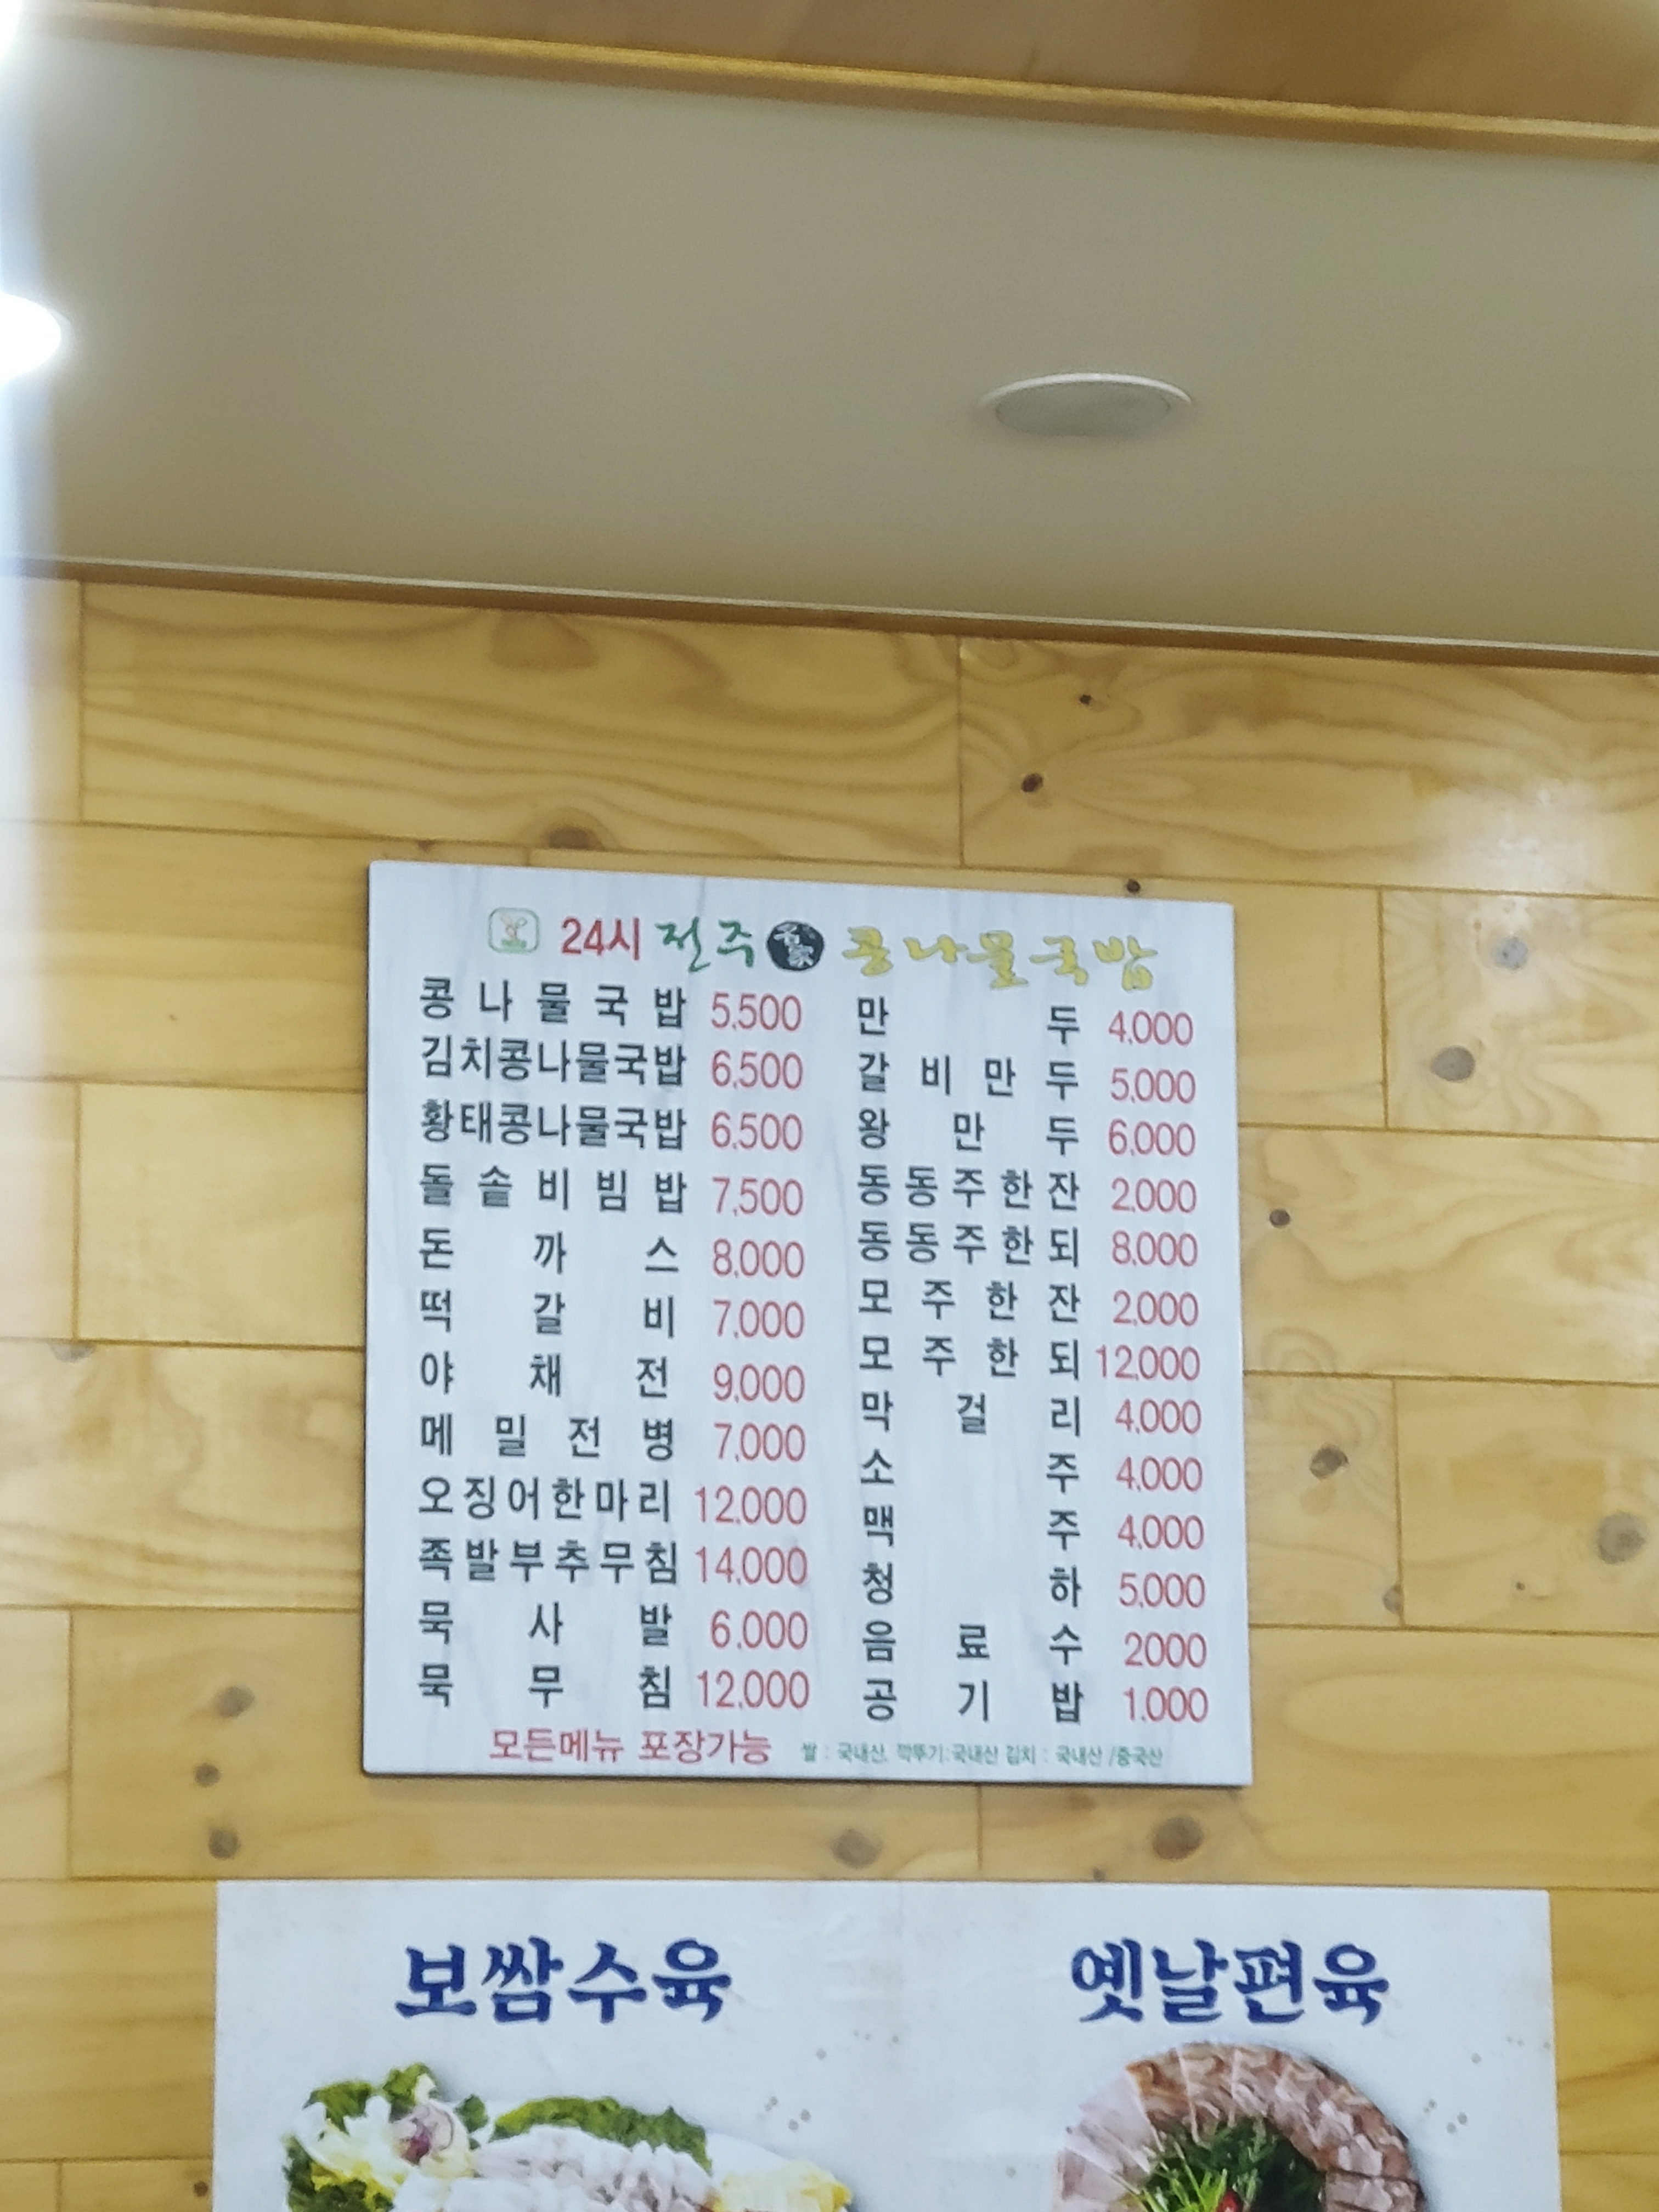 24시 전주 名家 콩나물국밥
콩나물국밥 5,500
김치콩나물국밥 6,500
황태콩나물국밥 6,500
돌솥비빔밥 7,500
돈까스 8,000
떡갈비 7,000
야채전 9,000
메밀전병 7,000
오징어한마리 12,000
족발부추무침 14,000
묵사발 6,000
묵무침 12,000
만두 4,000
갈비만두 5,000
왕만두 6,000
동동주한잔 2,000
동동주한되 8,000
모주한잔 2,000
모주한되 12,000
막걸리 4,000
소주 4,000
맥주 4,000
청하 5,000
음료수 2000
공기밥 1,000
모든메뉴 포장가능
쌀 : 국내산, 깍뚜기:국내산 김치 : 국내산 /중국산
보쌈수육
옛날편육